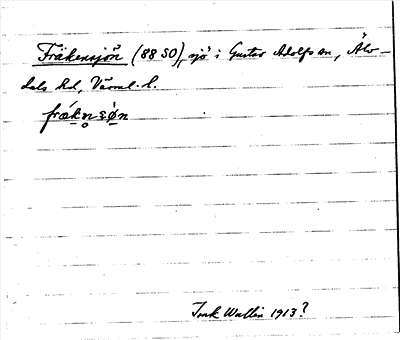 Fräkensjön (88 SO), sjö i Gustav Adolfs sn, Älv-
dals hd, Värml. l.
frǽkn̥ʂø̀n
Wallin 1913?